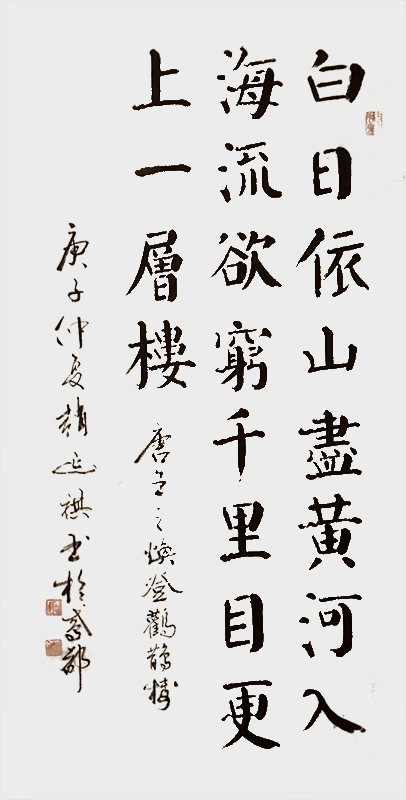 白日依山盡黄河入
海流欲窮千里目更
上一層樓
唐王之渙登鸛鵲樓
庚子仲夏趙延祺书於鳶都